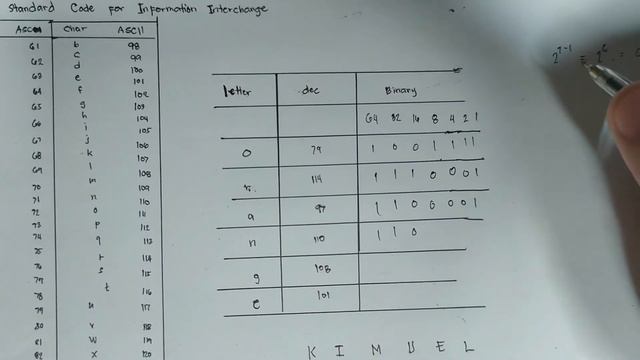 Standard Code for Information Interchange
ASCII Char ASCII
61 b 98
62 c 99
63 d 100
64 e 101
65 f 102
66 g 103
67 h 104
68 i 105
69 j 106
70 k 107
71 l 108
72 m 109
73 n 110
74 o 111
75 p 112
76 q 113
77 r 114
78 s 115
79 t 116
80 u 117
81 v 118
82 w 119
x 120
letter dec Binary
64 32 16 8 4 2 1
O 79 1 0 0 1 1 1 1
r 114 1 1 1 0 0 0 1
a 97 1 1 0 0 0 0 1
n 110 1 1 0
g 108
e 101
K I M U E L